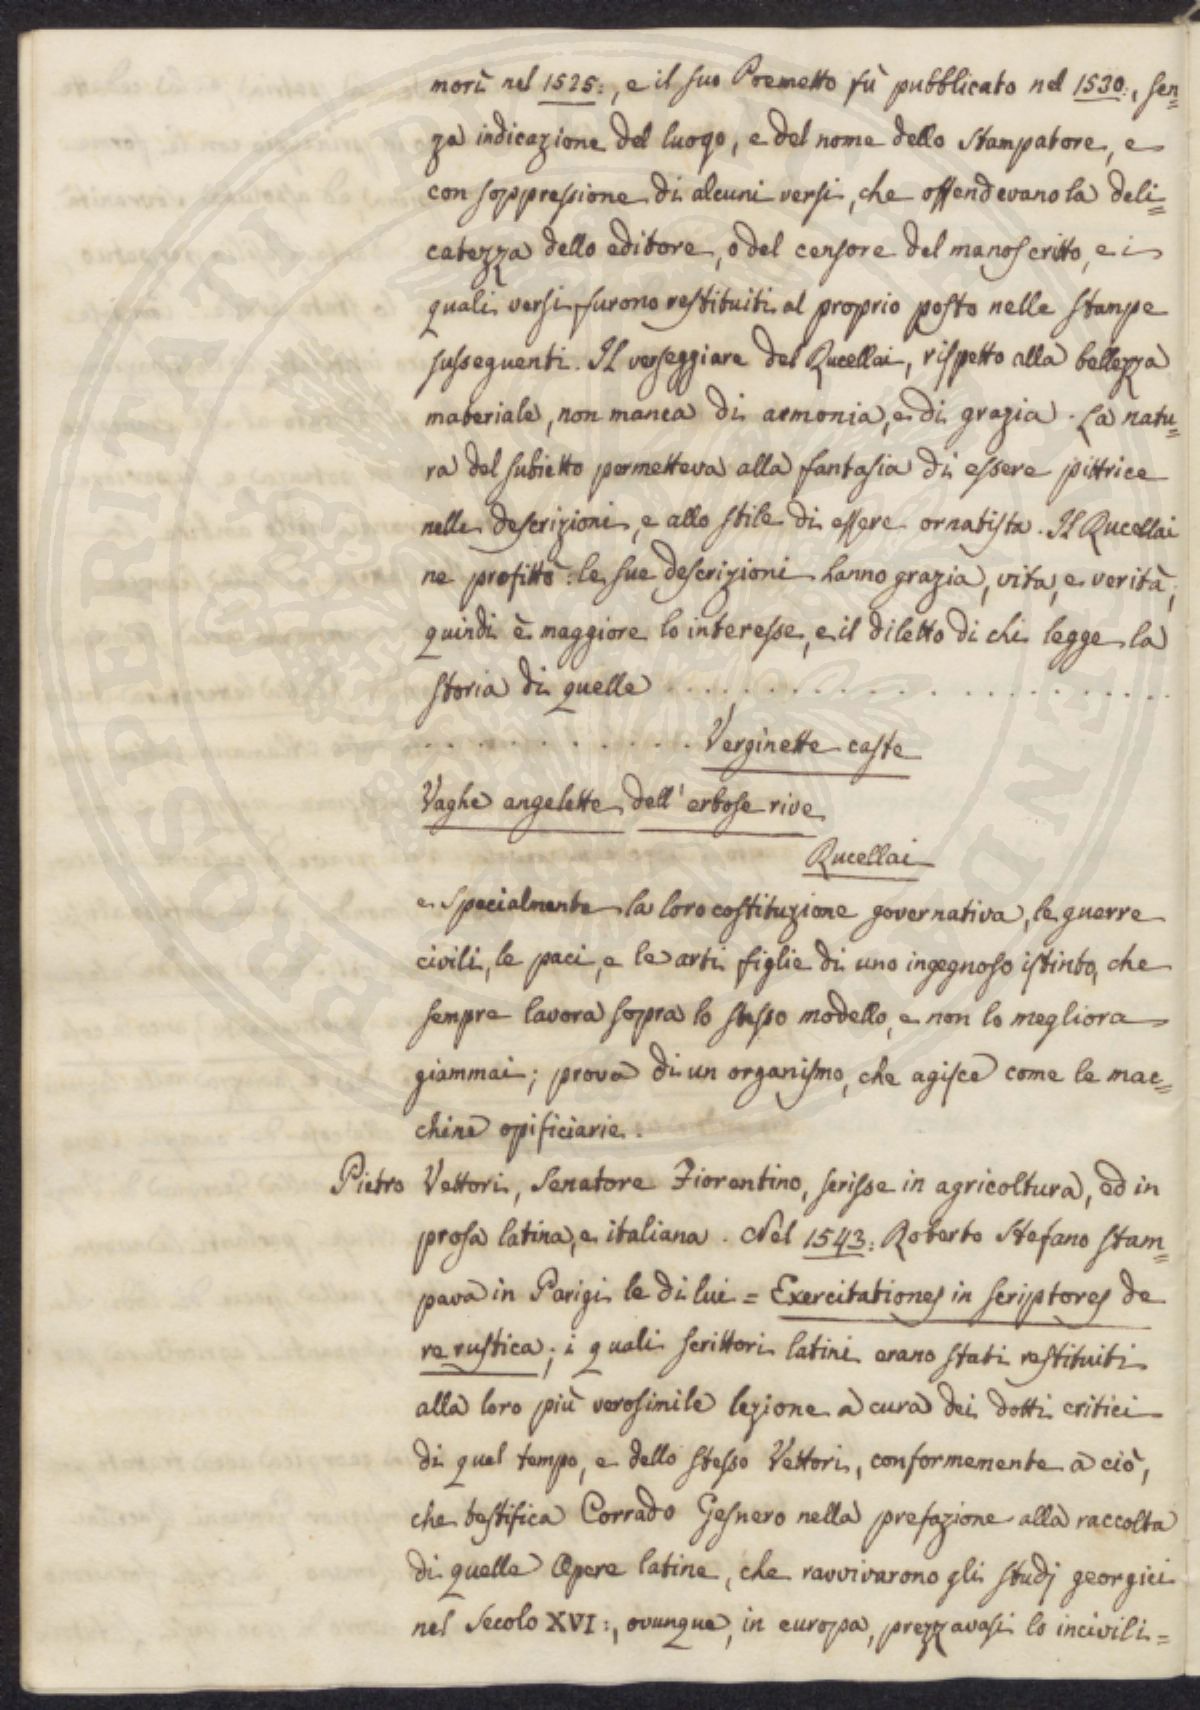 morì nel 1525:, e il suo Poemetto fù pubblicato nel 1530:, sen=
za indicazione del luogo, e del nome dello Stampatore, e
con soppressione di alcuni versi, che offendevano la deli=
catezza dello editore, o del censore del manoscritto, e i
quali versi furono restituiti al proprio posto nelle stampe
susseguenti. Il verseggiare del Rucellai, rispetto alla bellezza
materiale, non manca di armonia, e di grazia. La natu=
ra del subietto permetteva alla fantasia di essere pittrice
nelle descrizioni, e allo stile di essere ornatista. Il Rucellai
ne profittò: le sue descrizioni hanno grazia, vita, e verità;
quindi è maggiore lo interesse, e il diletto di chi legge la
storia di quelle . . . . . . . . . . . . . . . . . . . .
. . . . . . . . . . . Verginette caste
Vaghe angelette dell' erbose rive
Rucellai
e specialmente la loro costituzione governativa, le guerre
civili, le paci, e le arti figlie di uno ingegnoso istinto, che
sempre lavora sopra lo stesso modello, e non lo megliora
giammai; prova di un organismo, che agisce come le mac=
chine opificiarie.
Pietro Vettori, Senatore Fiorentino, scrisse in agricoltura, ed in
prosa latina, e italiana. Nel 1543: Roberto Stefano stam=
pava in Parigi le di lui = Exercitationes in scriptores de
re rustica; i quali scrittori latini erano stati restituiti
alla loro più verosimile lezione a cura dei dotti critici
di quel tempo, e dello stesso Vettori, conformemente a ciò,
che testifica Corrado Gesnero nella prefazione alla raccolta
di quelle Opere latine, che ravvivarono gli studj georgici
nel Secolo XVI:, ovunque, in europa, prezzavasi lo incivili=
PROSPERITATI PUBLICAE AUGENDAE